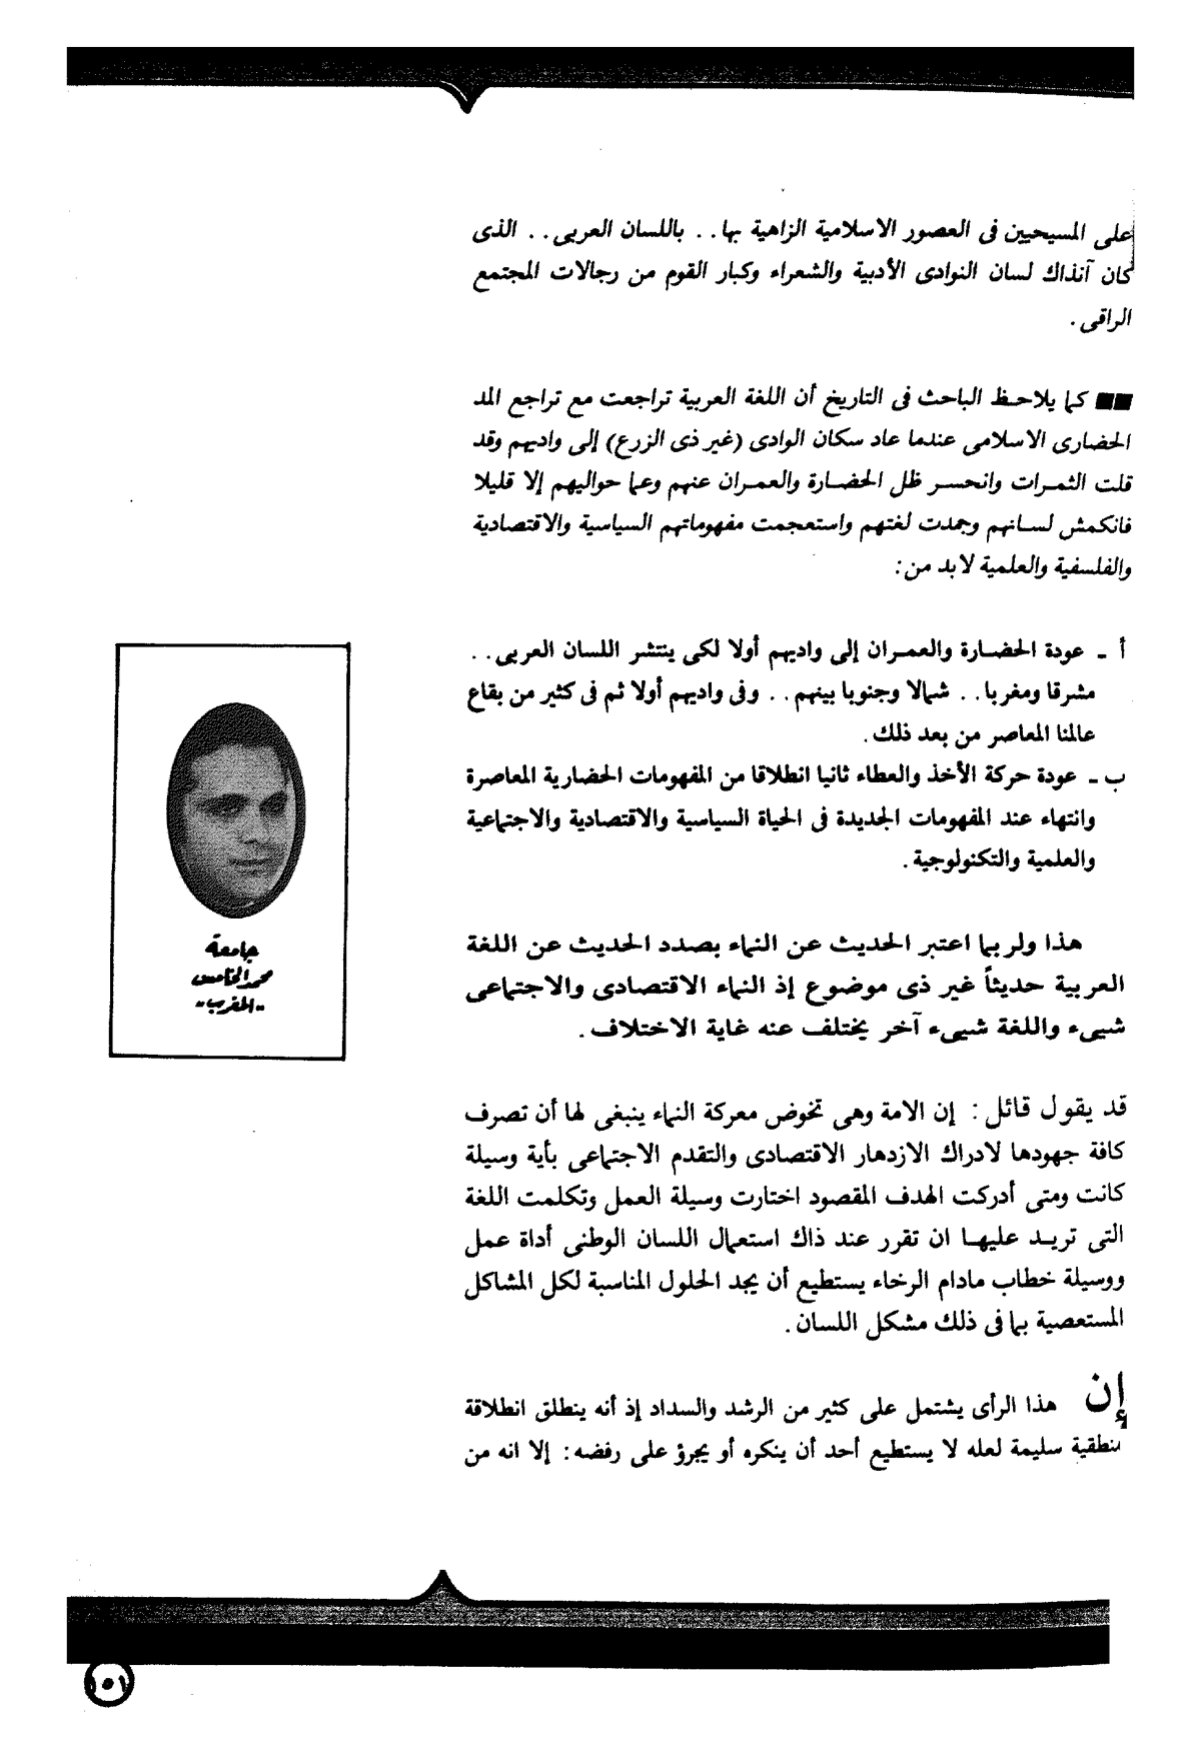 على المسيحيين فى العصور الاسلامية الزاهية بها . . باللسان العربى . . الذى
كان آنذاك لسان النوادى الأدبية والشعراء وكبار القوم من رجالات المجتمع
الراقى .
■■ كما يلاحظ الباحث فى التاريخ أن اللغة العربية تراجعت مع تراجع المد
الحضارى الاسلامى عندما عاد سكان الوادى (غير ذى الزرع) إلى واديهم وقد
قلت الثمرات وانحسر ظل الحضارة والعمران عنهم وعما حواليهم إلا قليلا
فانكمش لسانهم وجمدت لغتهم واستعجمت مفهوماتهم السياسية والاقتصادية
والفلسفية والعلمية لابد من :
أ ـ عودة الحضارة والعمران إلى واديهم أولا لكى ينتشر اللسان العربى . .
مشرقا ومغربا . . شمالا وجنوبا بينهم . . وفى واديهم أولا ثم فى كثير من بقاع
عالمنا المعاصر من بعد ذلك .
ب ـ عودة حركة الأخذ والعطاء ثانيا انطلاقا من المفهومات الحضارية المعاصرة
وانتهاء عند المفهومات الجديدة فى الحياة السياسية والاقتصادية والاجتماعية
والعلمية والتكنولوجية .
هذا ولربما اعتبر الحديث عن النماء بصدد الحديث عن اللغة
العربية حديثاً غير ذى موضوع إذ النماء الاقتصادى والاجتماعى
شيىء واللغة شيىء آخر يختلف عنه غاية الاختلاف .
قد يقول قائل : إن الامة وهى تخوض معركة النماء ينبغى لها أن تصرف
كافة جهودها لادراك الازدهار الاقتصادى والتقدم الاجتماعى بأية وسيلة
كانت ومتى أدركت الهدف المقصود اختارت وسيلة العمل وتكلمت اللغة
التى تريد عليها ان تقرر عند ذاك استعمال اللسان الوطنى أداة عمل
ووسيلة خطاب مادام الرخاء يستطيع أن يجد الحلول المناسبة لكل المشاكل
المستعصية بما فى ذلك مشكل اللسان .
إن هذا الرأى يشتمل على كثير من الرشد والسداد إذ أنه ينطلق انطلاقة
منطقية سليمة لعله لا يستطيع أحد أن ينكره أو يجرؤ على رفضه : إلا انه من
جامعة
محمد الخامس
"المغرب"
١٥١